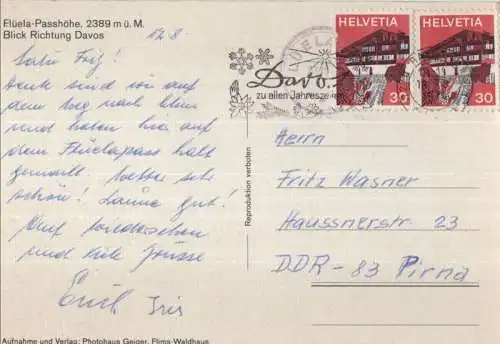 Flüela-Passhöhe, 2389 m ü. M.
Blick Richtung Davos
12.8
Salü Fritz!
Heute sind wir auf
dem Weg nach
und haben hier auf
dem Flüelapass halt
gemacht. Wetter sehr
schön! Laune gut!
Auf Wiedersehen
und viele Grüsse
Erich Iris
Aufnahme und Verlag: Photohaus Geiger, Flims-Waldhaus
Reproduktion verboten
Davos
zu allen Jahresze
HELVETIA
30
HELVETIA
30
Herrn
Fritz Wasner
Haussnerstr. 23
DDR-83 Pirna